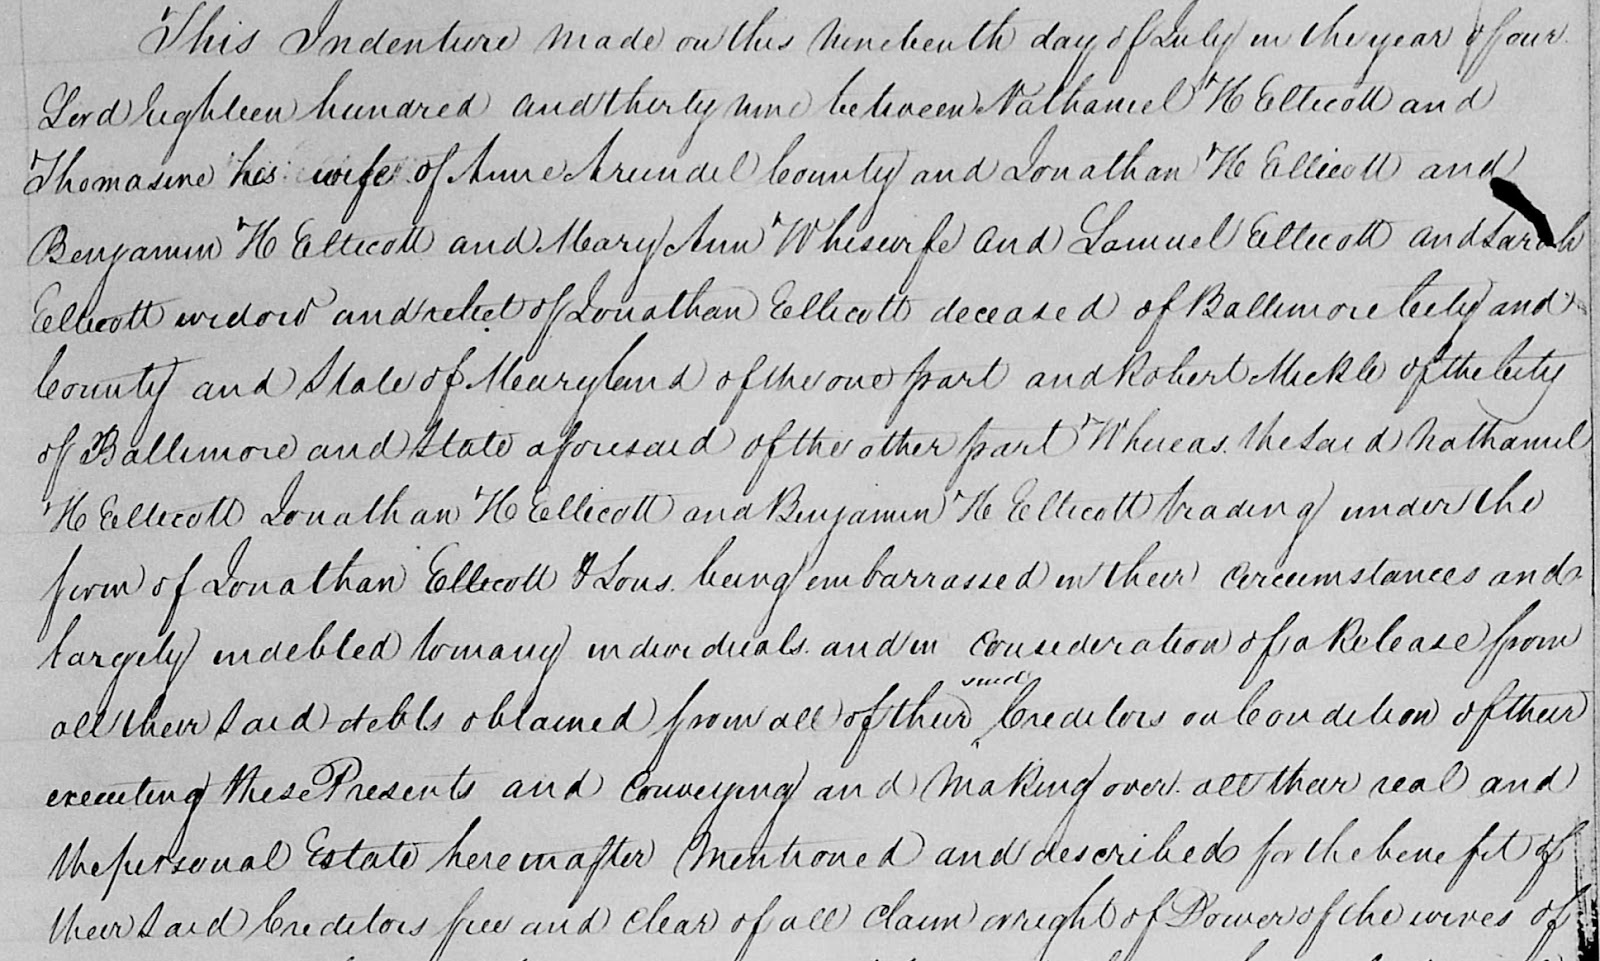 This Indenture made on this Nineteenth day of July in the year of our
Lord Eighteen hundred and thirty nine between Nathaniel H Ellicott and
Thomasine his wife of Anne Arundel County and Jonathan H Ellicott and
Benjamin H Ellicott and Mary Ann W his wife and Samuel Ellicott and Sarah
Ellicott widow and relict of Jonathan Ellicott deceased of Baltimore City and
County and State of Maryland of the one part and Robert Mickle of the City
of Baltimore and State aforesaid of the other part Whereas the said Nathaniel
H Ellicott Jonathan H Ellicott and Benjamin H Ellicott trading under the
firm of Jonathan Ellicott & Sons being embarrassed in their circumstances and
largely indebted to many individuals and in consideration of a Release from
all their said debts obtained from all of their said Creditors on Condition of their
executing these Presents and Conveying and Making over all their real and
the personal Estate hereinafter Mentioned and described for the benefit of
their said Creditors free and clear of all claim or right of Dower of the wives of